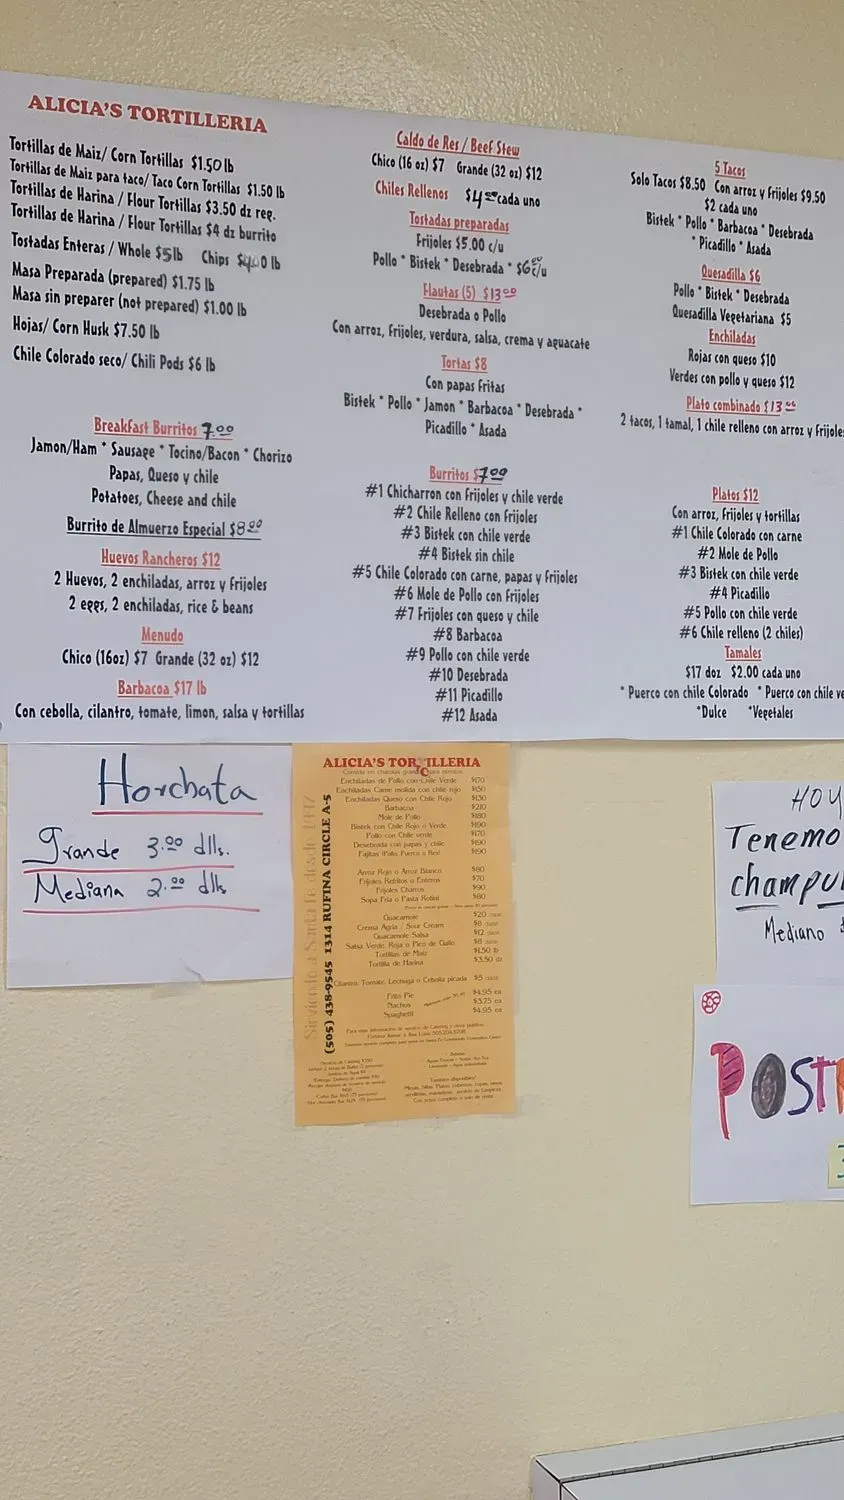 ALICIA'S TORTILLERIA
Tortillas de Maiz/ Corn Tortillas $1.50 lb
Tortillas de Maiz para taco/ Taco Corn Tortillas $1.50 lb
Tortillas de Harina / Flour Tortillas $3.50 dz reg.
Tortillas de Harina / Flour Tortillas $4 dz burrito
Tostadas Enteras / Whole $5lb Chips $4.00 lb
Masa Preparada (prepared) $1.75 lb
Masa sin preparer (not prepared) $1.00 lb
Hojas/ Corn Husk $7.50 lb
Chile Colorado seco/ Chili Pods $6 lb
Breakfast Burritos 7.00
Jamon/Ham * Sausage * Tocino/Bacon * Chorizo
Papas, Queso y chile
Potatoes, Cheese and chile
Burrito de Almuerzo Especial $8.00
Huevos Rancheros $12
2 Huevos, 2 enchiladas, arroz y frijoles
2 eggs, 2 enchiladas, rice & beans
Menudo
Chico (16oz) $7 Grande (32 oz) $12
Barbacoa $17 lb
Con cebolla, cilantro, tomate, limon, salsa y tortillas
Caldo de Res / Beef Stew
Chico (16 oz) $7 Grande (32 oz) $12
Chiles Rellenos $4.00 cada uno
Tostadas preparadas
Frijoles $5.00 c/u
Pollo * Bistek * Desebrada * $6.00 c/u
Flautas (5) $13.00
Desebrada o Pollo
Con arroz, frijoles, verdura, salsa, crema y aguacate
Tortas $8
Con papas fritas
Bistek * Pollo * Jamon * Barbacoa * Desebrada *
Picadillo * Asada
Burritos $7.00
#1 Chicharron con Frijoles y chile verde
#2 Chile Relleno con Frijoles
#3 Bistek con chile verde
#4 Bistek sin chile
#5 Chile Colorado con carne, papas y frijoles
#6 Mole de Pollo con Frijoles
#7 Frijoles con queso y chile
#8 Barbacoa
#9 Pollo con chile verde
#10 Desebrada
#11 Picadillo
#12 Asada
5 Tacos
Solo Tacos $8.50 Con arroz y Frijoles $9.50
$2 cada uno
Bistek * Pollo * Barbacoa * Desebrada
* Picadillo * Asada
Quesadilla $6
Pollo * Bistek * Desebrada
Quesadilla Vegetariana $5
Enchiladas
Rojas con queso $10
Verdes con pollo y queso $12
Plato combinado $13.00
2 tacos, 1 tamal, 1 chile relleno con arroz y frijole
Platos $12
Con arroz, frijoles y tortillas
#1 Chile Colorado con carne
#2 Mole de Pollo
#3 Bistek con chile verde
#4 Picadillo
#5 Pollo con chile verde
#6 Chile relleno (2 chiles)
Tamales
$17 doz $2.00 cada uno
* Puerco con chile Colorado * Puerco con chile ve
*Dulce *Vegetales
Horchata
Grande 3.00 dlls.
Mediana 2.00 dlls
ALICIA'S TORTILLERIA
Enchiladas de Pollo con Chile Verde $170
Enchiladas Carne molida con chile rojo $150
Enchiladas Queso con Chile Rojo $130
Barbacoa $210
Mole de Pollo $180
Bistek con Chile Rojo o Verde $190
Pollo con Chile verde $170
Desebrada con papas y chile $190
Fajitas (Pollo, Puerco o Res) $190
Arroz Rojo o Arroz Blanco $80
Frijoles Refritos o Enteros $70
Frijoles Charros $90
Sopa Fria o Pasta Rotini $80
Guacamole $20
Crema Agria / Sour Cream $8
Guacamole Salsa $12
Salsa Verde, Roja o Pico de Gallo $8
Tortillas de Maiz $1.50 lb
Tortilla de Harina $3.50 dz
Cilantro, Tomate, Lechuga o Cebolla picada $5
Frito Pie $4.95 ea
Nachos $3.75 ea
Spaghetti $4.95 ea
(505) 438-9545 1314 RUFINA CIRCLE A-5
HOY
Tenemo
champu
Mediano
POSTR